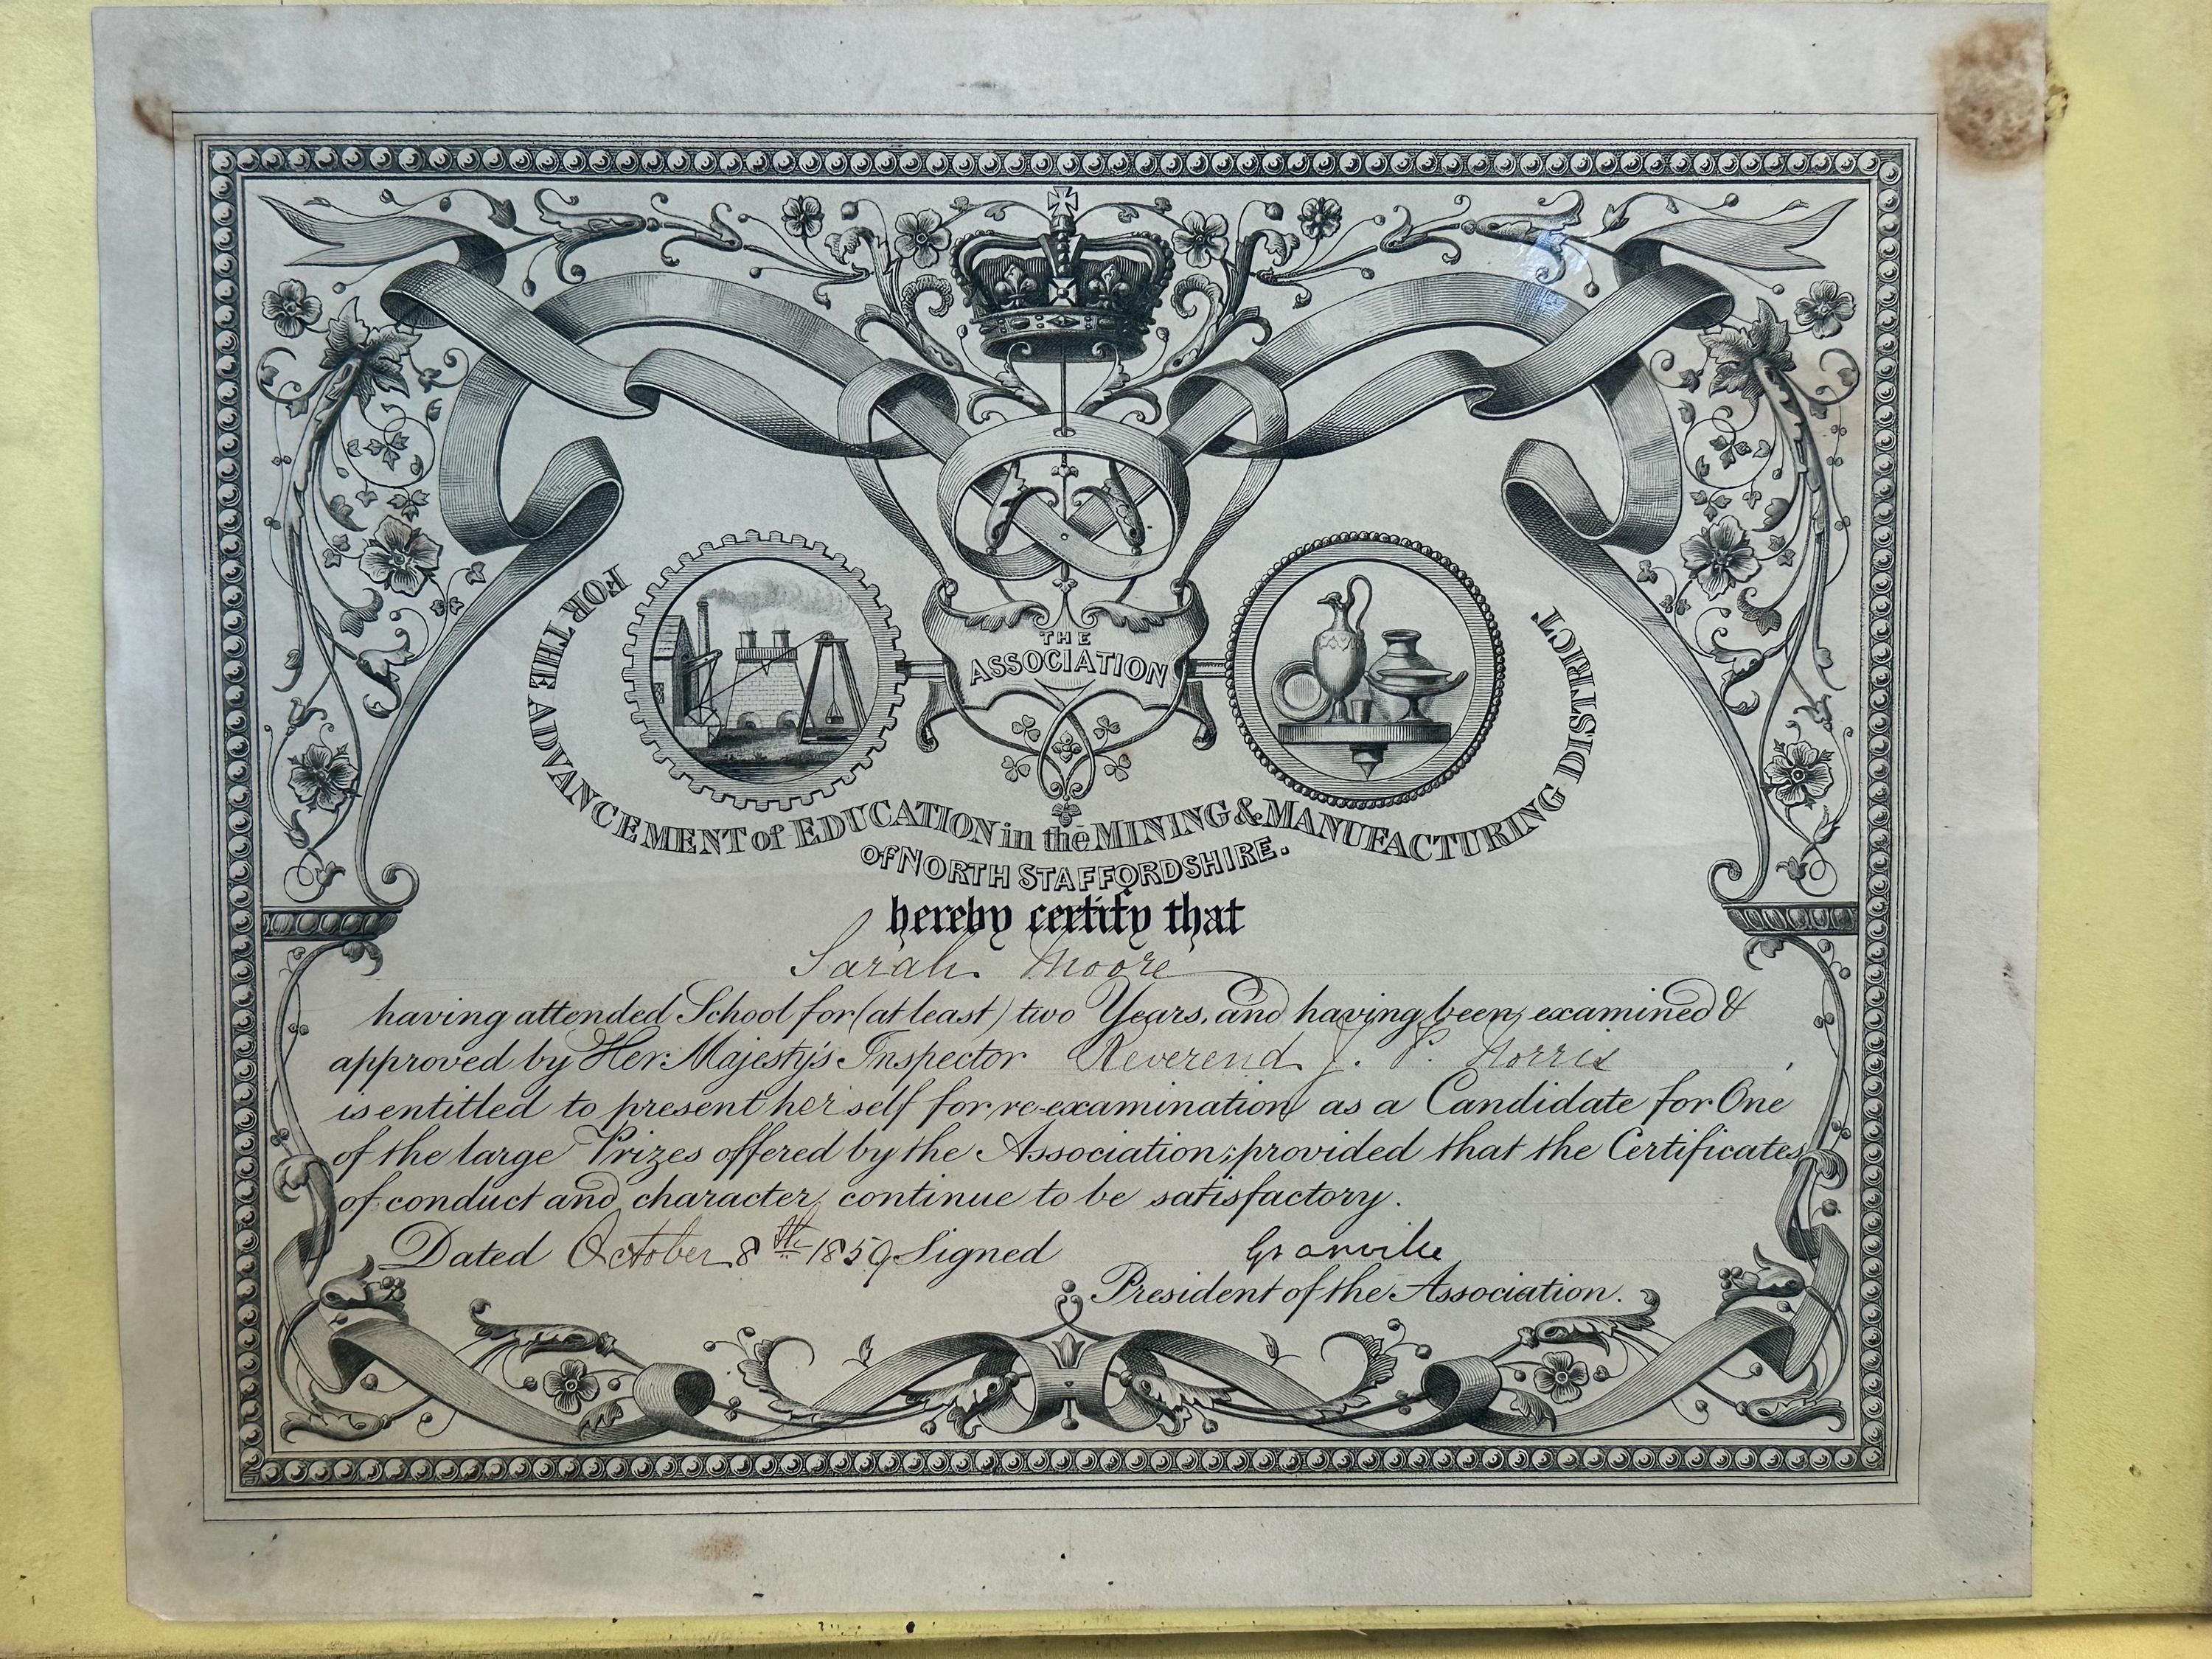 THE
ASSOCIATION
FOR THE ADVANCEMENT of EDUCATION in the MINING & MANUFACTURING DISTRICT
of NORTH STAFFORDSHIRE.
hereby certify that
Sarah Moore
having attended School for (at least) two Years, and having been examined &
approved by Her Majesty's Inspector Reverend J. P. Norris,
is entitled to present herself for re-examination as a Candidate for One
of the large Prizes offered by the Association; provided that the Certificates
of conduct and character continue to be satisfactory.
Dated October 8th 1859 Signed Granville
President of the Association.